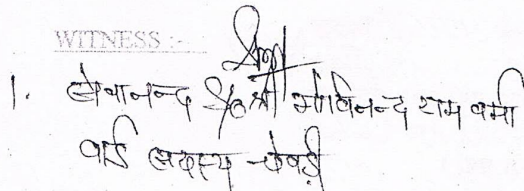 WITNESS :-
1. सेवानन्द S/o श्री गोविनन्द राम वर्मा
वार्ड सदस्य - चेवड़ी